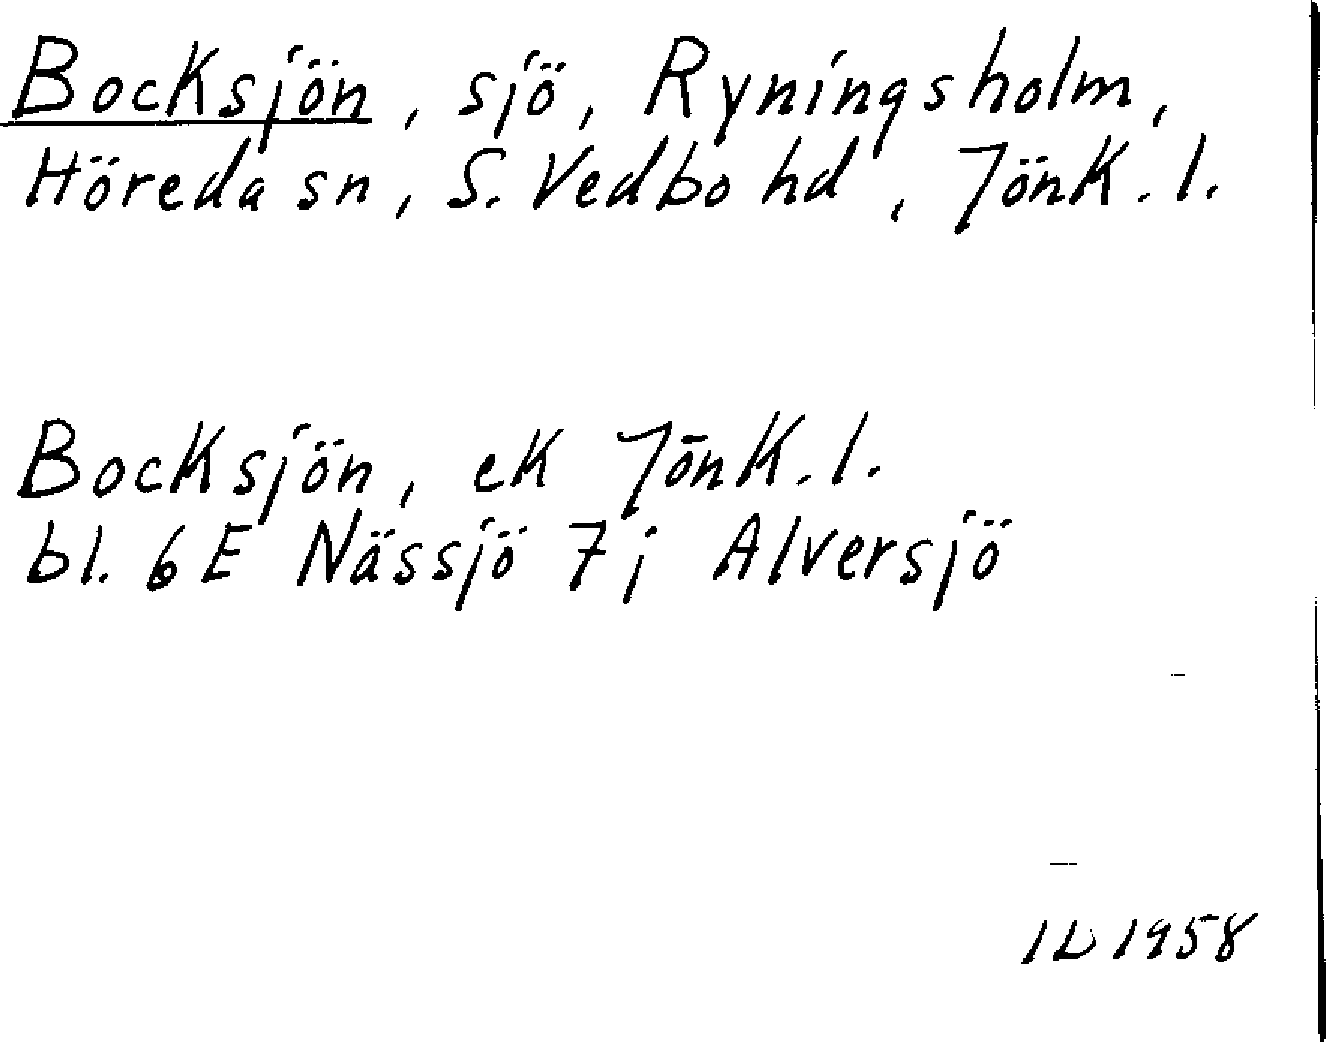 Bocksjön, sjö, Ryningsholm,
Höreda sn, S. Vedbo hd, Jönk. l.
Bocksjön, ek Jönk. l.
bl. 6E Nässjö 7j Alversjö
1958